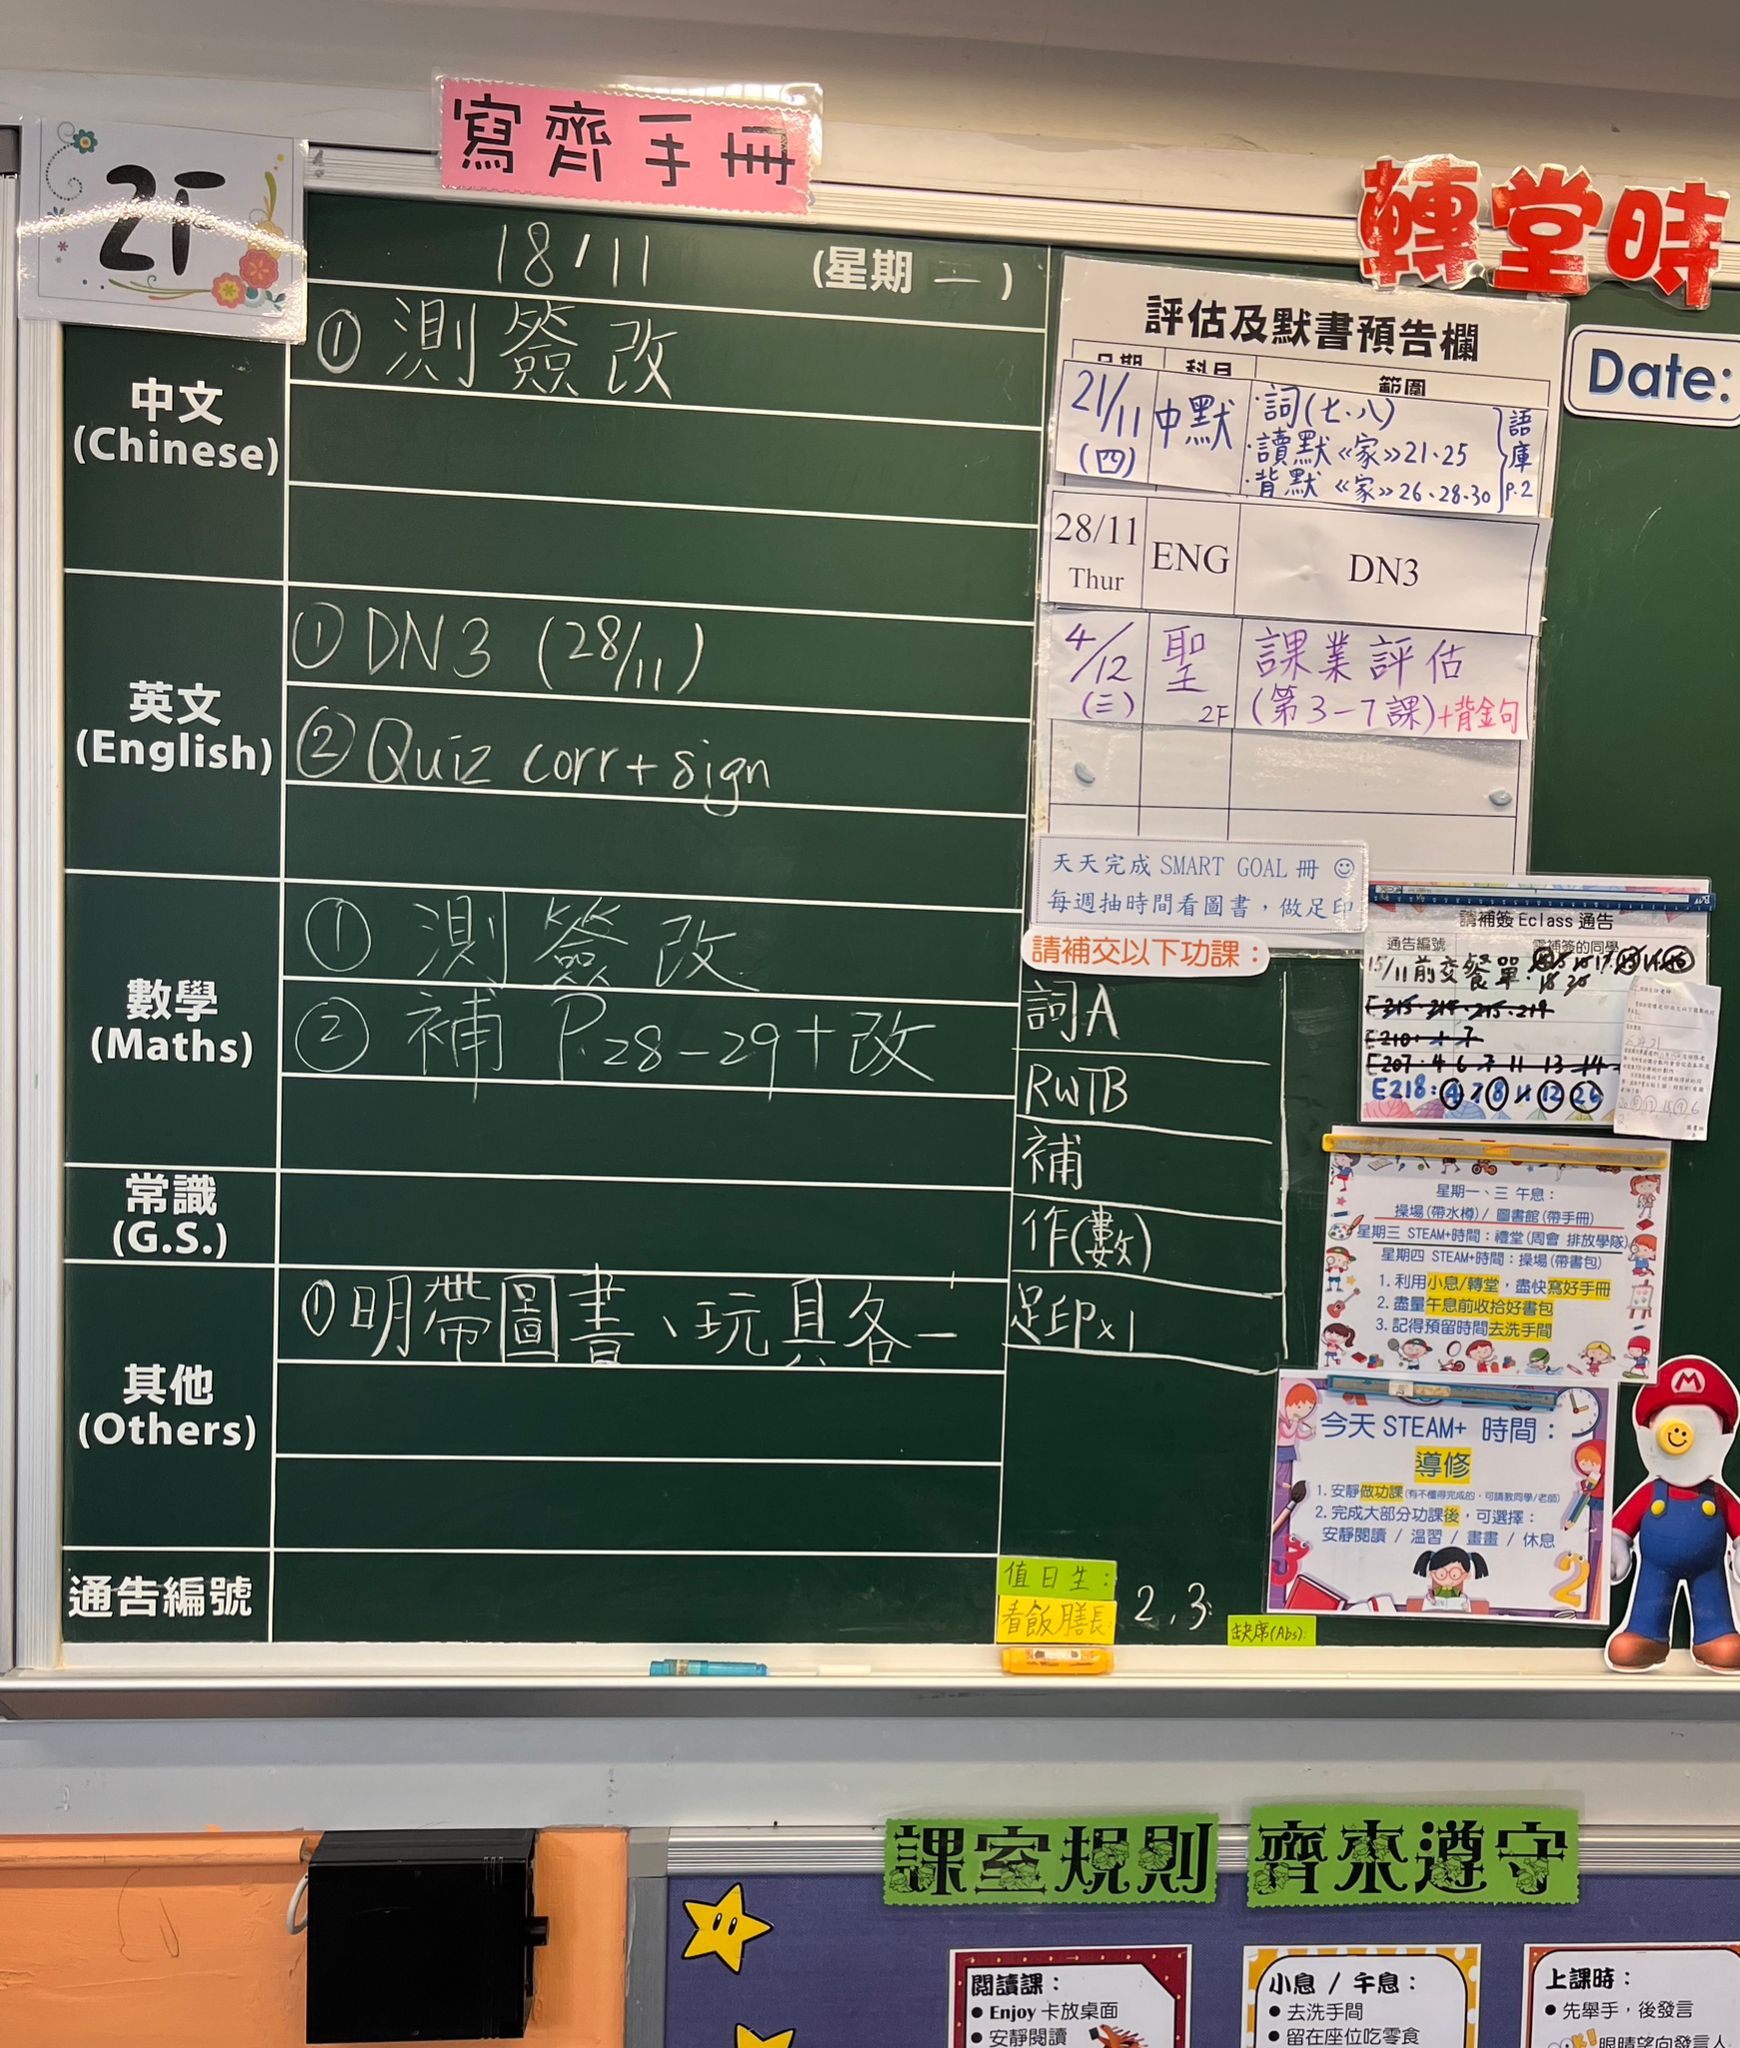 寫齊手冊
2F
轉堂時
18/11 (星期 一)
中文
(Chinese)
① 測簽改
英文
(English)
① DN3 (28/11)
② Quiz corr + sign
數學
(Maths)
① 測簽改
② 補 P.28-29+改
常識
(G.S.)
其他
(Others)
① 明帶圖書、玩具各一
通告編號
評估及默書預告欄
日期 科目 範圍
21/11
(四)
中默
·詞(七、八)
·讀默《家》21、25
·背默《家》26、28、30
語庫
P.2
28/11
Thur
ENG
DN3
4/12
(三)
聖
2F
課業評估
(第3-7課)+背金句
Date:
天天完成 SMART GOAL 冊 ☺
每週抽時間看圖書，做足印
請補交以下功課：
詞A
RWTB
補
作(數)
足印x1
請補簽 Eclass 通告
通告編號 需補簽的同學
15/11前交餐單:
E207: 4 6 7 11 13 14
E218:
星期一、三 午息：
操場(帶水樽)/ 圖書館(帶手冊)
星期三 STEAM+時間：禮堂(周會 排放學隊)
星期四 STEAM+時間：操場(帶書包)
1. 利用小息/轉堂，盡快寫好手冊
2. 盡量午息前收拾好書包
3. 記得預留時間去洗手間
今天 STEAM+ 時間：
導修
1. 安靜做功課(有不懂得完成的，可請教同學/老師)
2. 完成大部分功課後，可選擇：
安靜閱讀 / 溫習 / 畫畫 / 休息
M
值日生：
看飯膳長
2，3
缺席(Abs):
課室規則 齊來遵守
閱讀課：
● Enjoy 卡放桌面
● 安靜閱讀
小息 / 午息：
● 去洗手間
● 留在座位吃零食
上課時：
● 先舉手，後發言
眼睛望向發言人